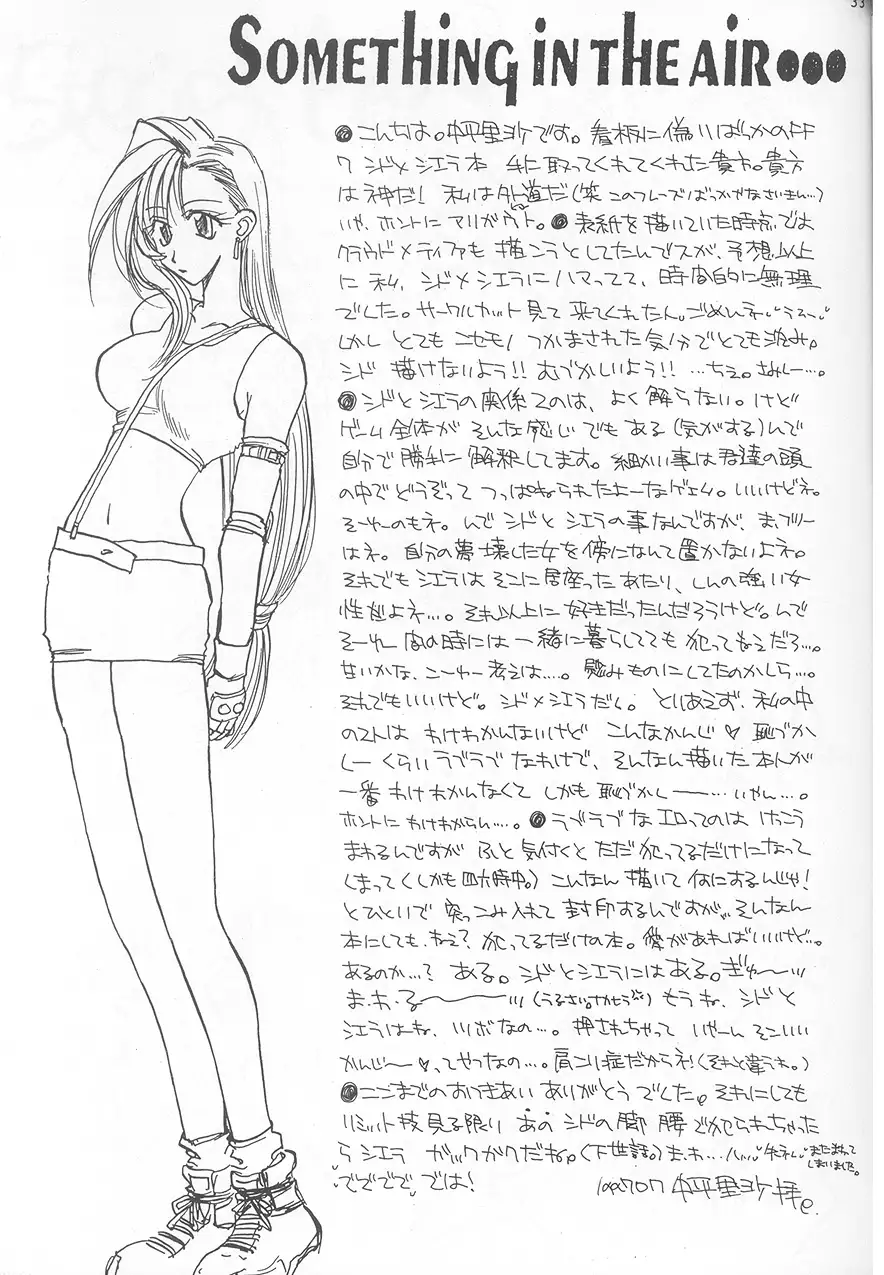 33
SOMETHING IN THE AIR●●●
●こんちは。中平里沙です。看板に偽りばっかのFF
7 シド×シエラ本 手に取ってくれてくれた貴方。貴方
は神だ! 私は外道だ(笑 このフレーズばっかやなさいきん…)
いや、ホントにアリガウト。●表紙を描いていた時点では
クラウド×ティファも描こうとしてたんでスが、予想以上
に私、シド×シエラにハマってて、時間的に無理
でした。サークルカット見て来てくれたん。ごめんネ
しかしとてもニセモノつかまされた気分でとても沈み。
シド 描けないよう!! むづかしいよう!! …ちぇ。さみしー…。
●シドとシエラの関係てのは、よく解らない。けど
ゲーム全体がそんな感じでもある(気がする)んで
自分で勝手に解釈してます。細かい事は君達の頭
の中でどうぞって つっぱねられたよーなゲェム。いいけどネ。
そーゆのもネ。んでシドとシエラの事なんですが、まぁフツー
はネ。自分の夢壊した女を傍になんて置かないよネ。
それでもシエラはそこに居座ったあたり、しんの強い女
性だよネ…。それ以上に好きだったんだろうけど。んで
そーゆー間の時には一緒に暮らしてても犯ってもえだろ…。
甘いかな、こーゆー考えは…。慰みものにしてたのかしら…。
それでもいいけど。シド×シエラだし。とりあえず、私の中
の2人は わけわかんないけど こんなかんじ♡ 恥づか
しーくらいラブラブなわけで、そんなん描いた本人が
一番わけわかんなくて しかも恥づかしー――… いやん…。
ホントにわけわからん…。●ラブラブなエロってのは けっこう
まわるんですが ふと気付くと ただ犯ってるだけになって
しまってくしかも四六時中。)こんなん描いて何にするんじゃ!
とひといで突っこみ入れて封印するんですが、そんなん
本にしても、ねえ? 犯ってるだけの本。愛があればいいけど…。
あるのか…? ある。シドとシエラにはある。ぎゅ～
ま・わ・る～ (うるさい) もうね、シドと
シエラはね、ツボなの…。押されちゃって いやーん そこいい
かんじ～♡、ってやつなの…。肩こり症だからネ!(それと違うわ。)
●ここまでのおつきあいありがとうでした。それにしても
リミット技見る限り あの シドの脚 腰でやられちゃった
らシエラ ガックガクだね。(下世話。)まわ… またまわって
しまいました。
でででで では!
199707 中平里沙拝